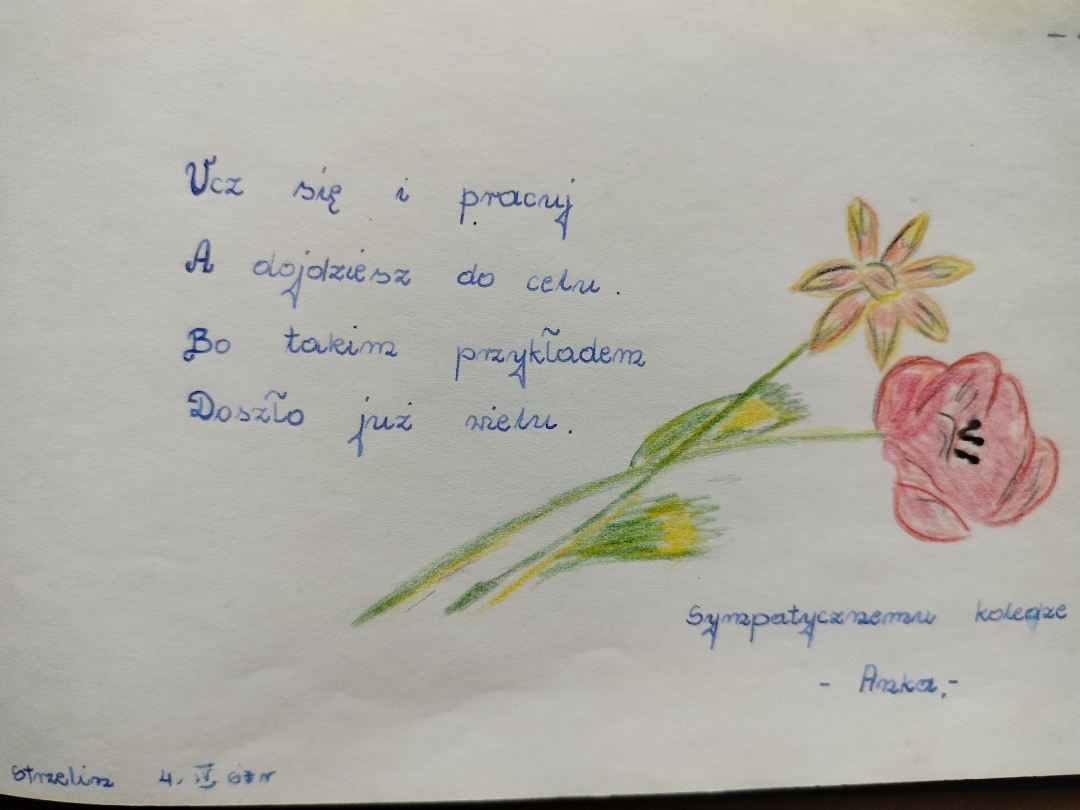 Ucz się i pracuj
A dojdziesz do celu.
Bo takim przykładem
Doszło już wielu.
Sympatycznemu koledze
- Anka,-
Strzelin 4. IV